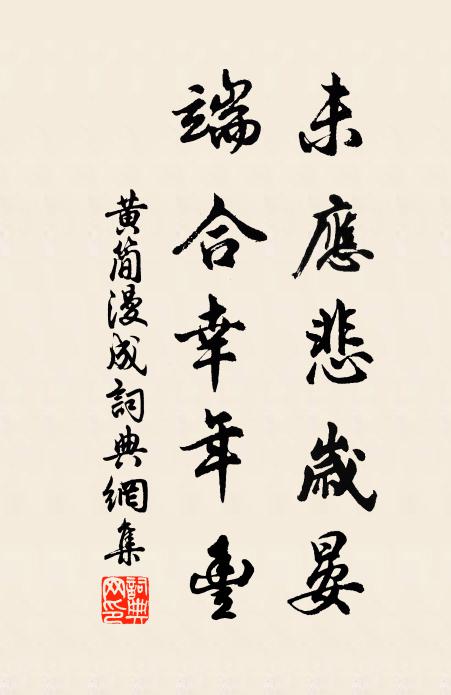 未應悲歲晏
端合幸年豐
黃簡漫成詞典網集
詞典網印